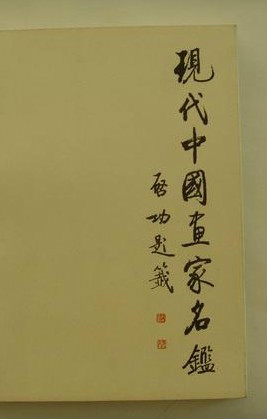 現代中國畫家名鑑
啓功題籤